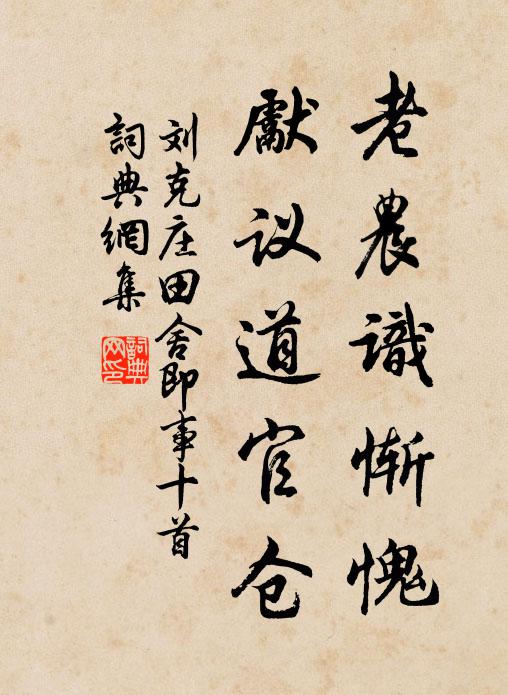 老農識惭愧
獻议道官仓
刘克庄田舍即事十首
詞典網集
詞典网印